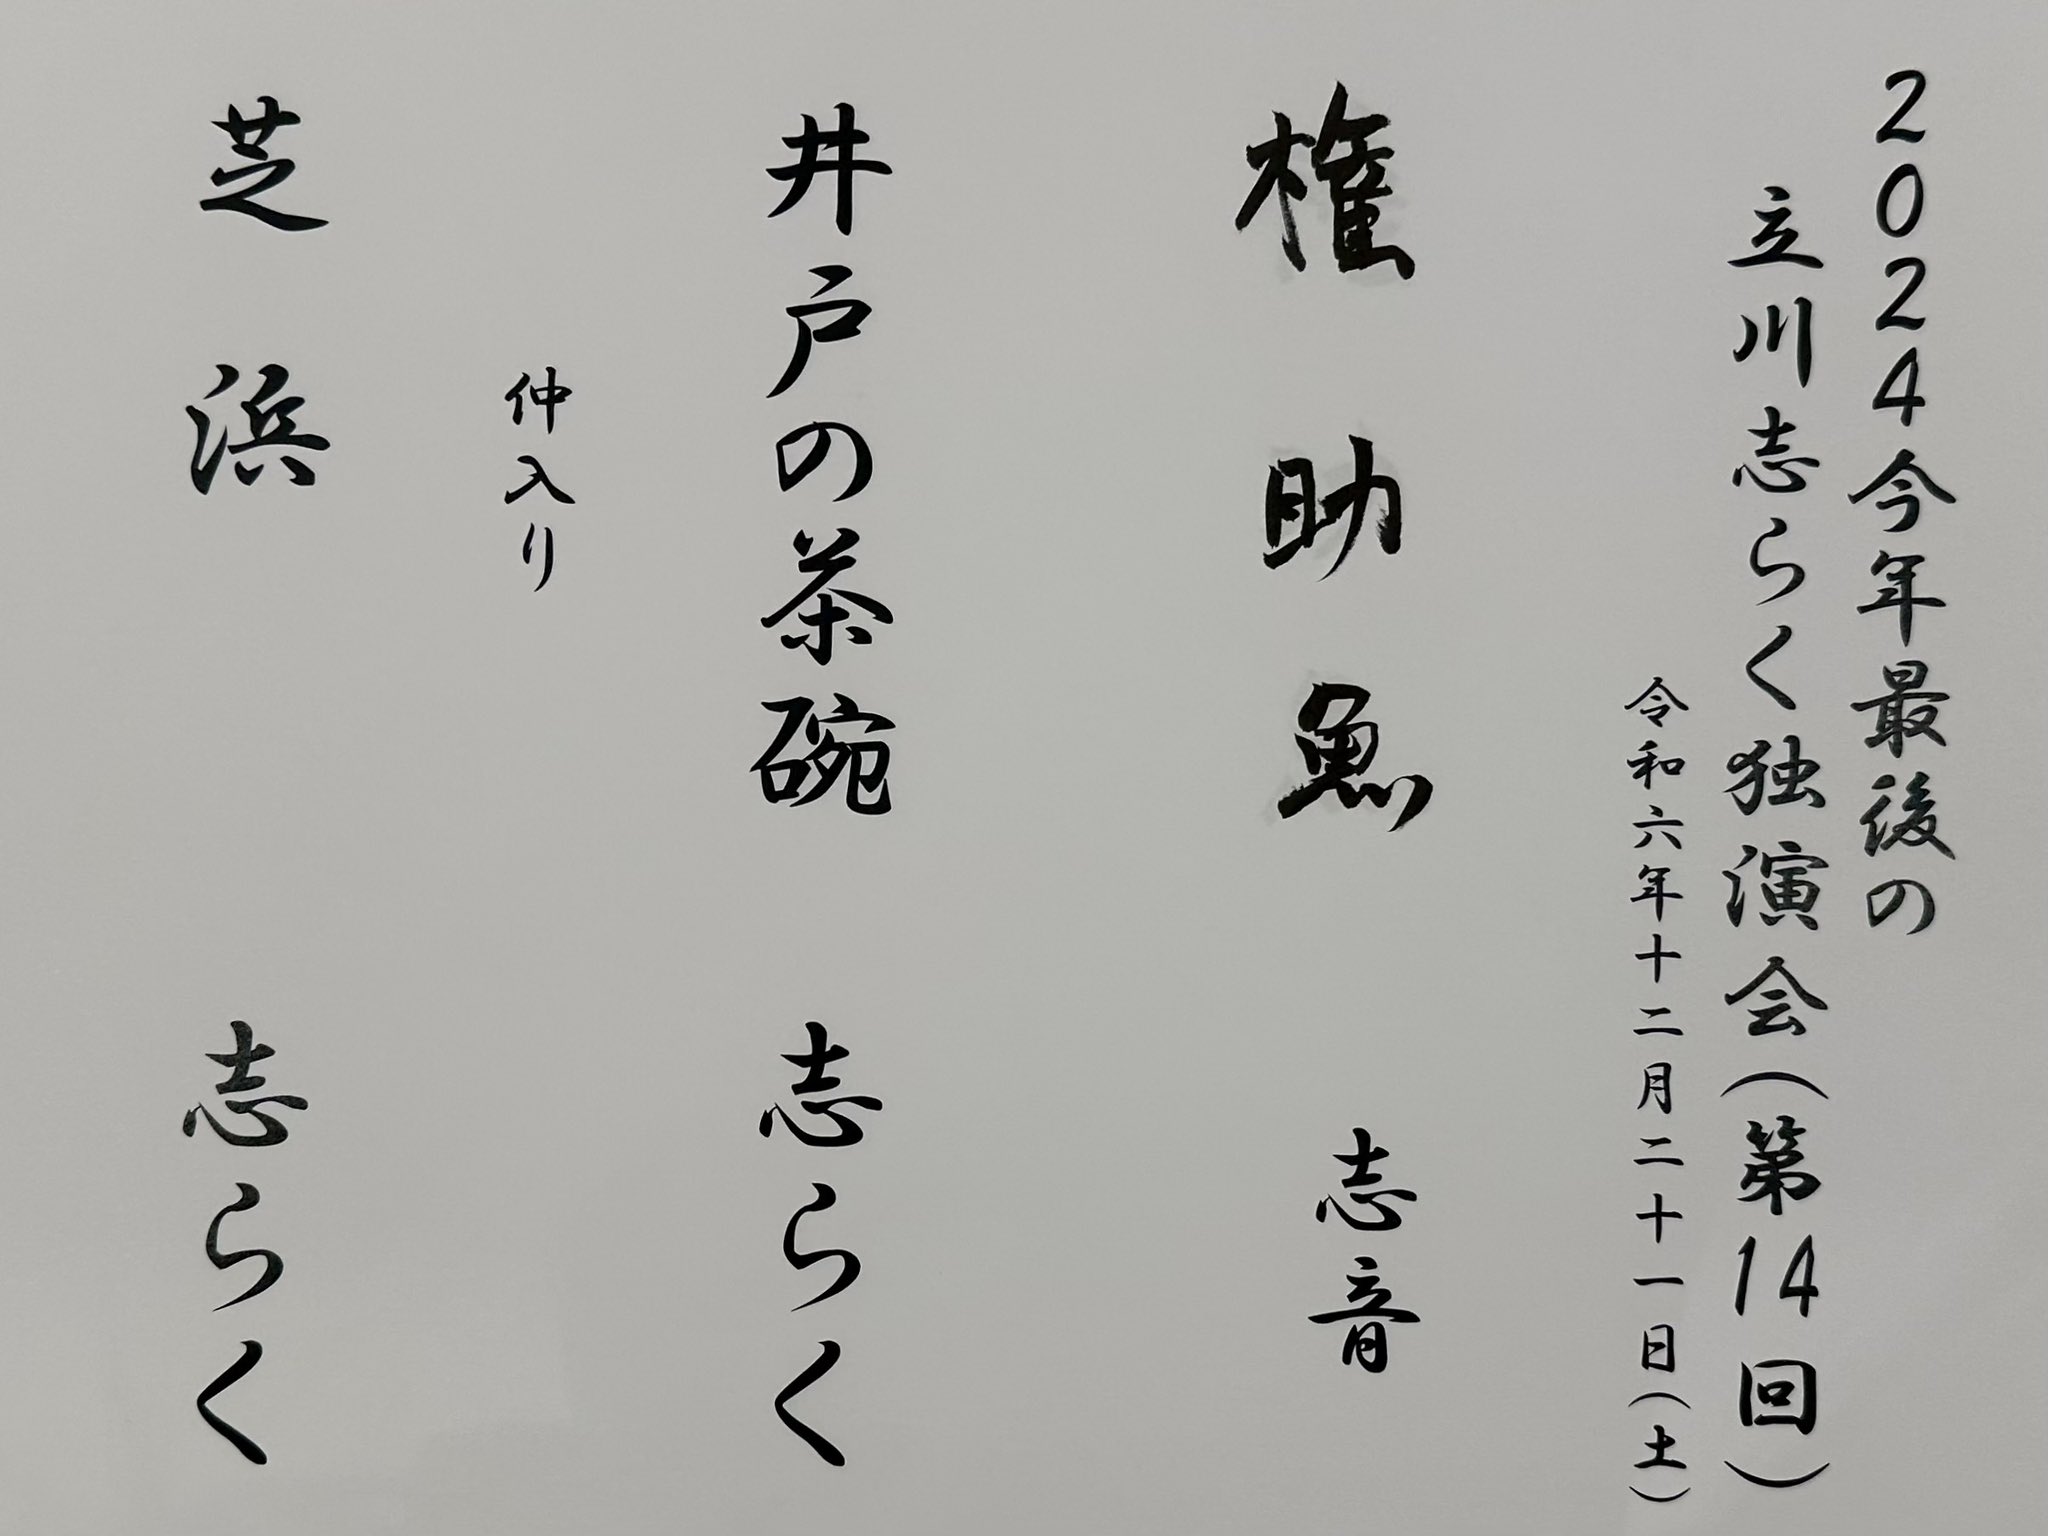 2024今年最後の
立川志らく独演会(第14回)
令和六年十二月二十一日(土)
権助魚 志音
井戸の茶碗 志らく
仲入り
芝浜 志らく